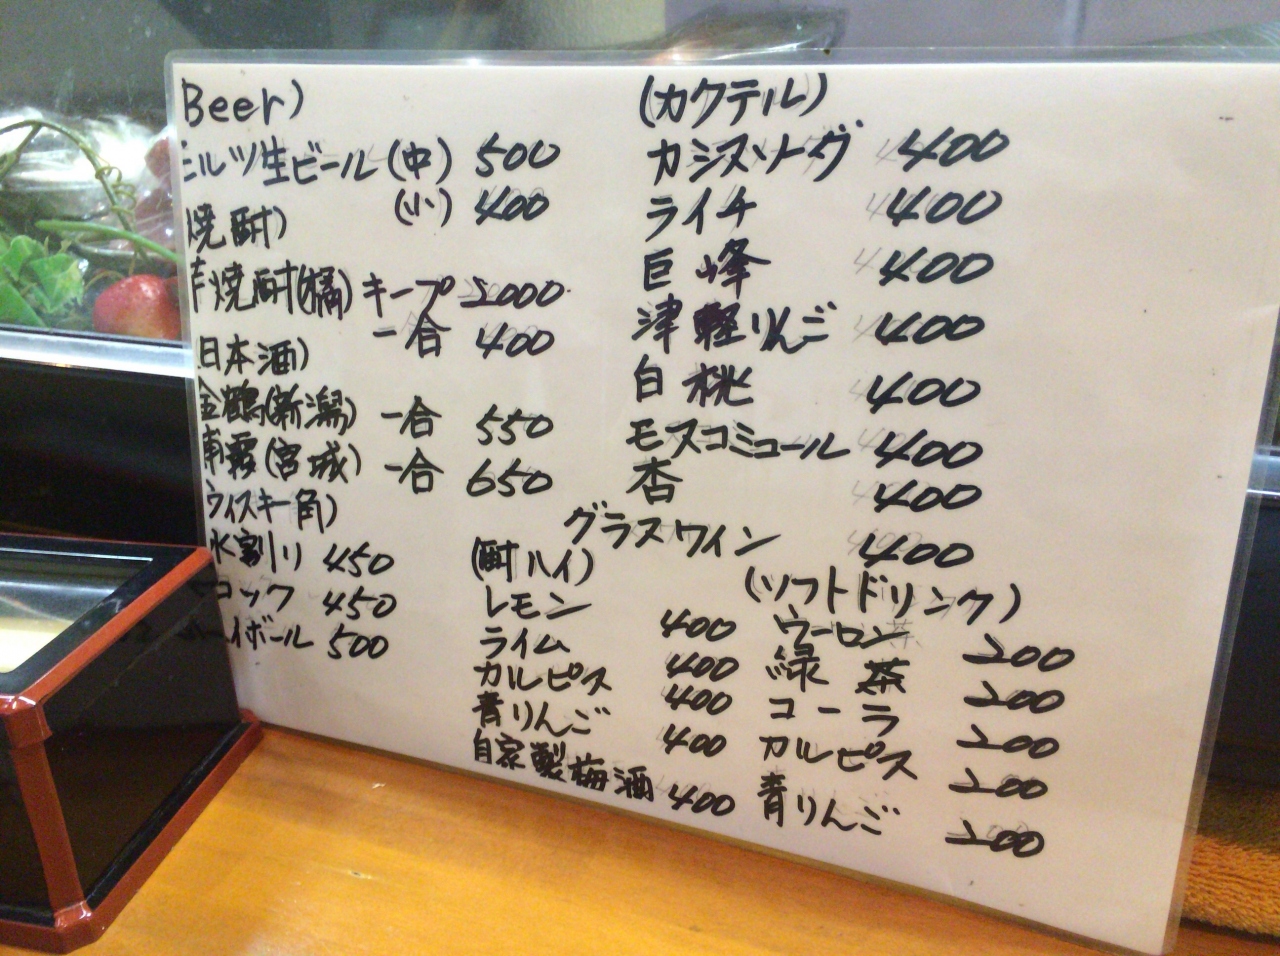 Beer)
モルツ生ビール(中) 500
(小) 400
焼酎)
芋焼酎(橘) キープ 2000
一合 400
日本酒)
金鶴(新潟) 一合 550
(宮城) 一合 650
ウィスキー角)
水割り 450
ロック 450
ハイボール 500
(カクテル)
カシスソーダ 400
ライチ 400
巨峰 400
津軽りんご 400
白桃 400
モスコミュール 400
杏 400
グラスワイン 400
(酎ハイ)
レモン 400
ライム 400
カルピス 400
青りんご 400
自家製梅酒 400
(ソフトドリンク)
ウーロン 200
緑茶 200
コーラ 200
カルピス 200
青りんご 200